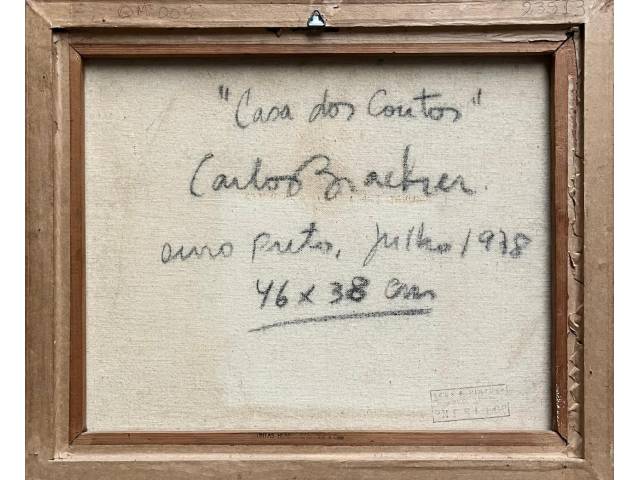 QM 005
23513
"Casa dos Contos"
Carlos Bracher.
ouro preto, julho 1978
46 x 38 cm